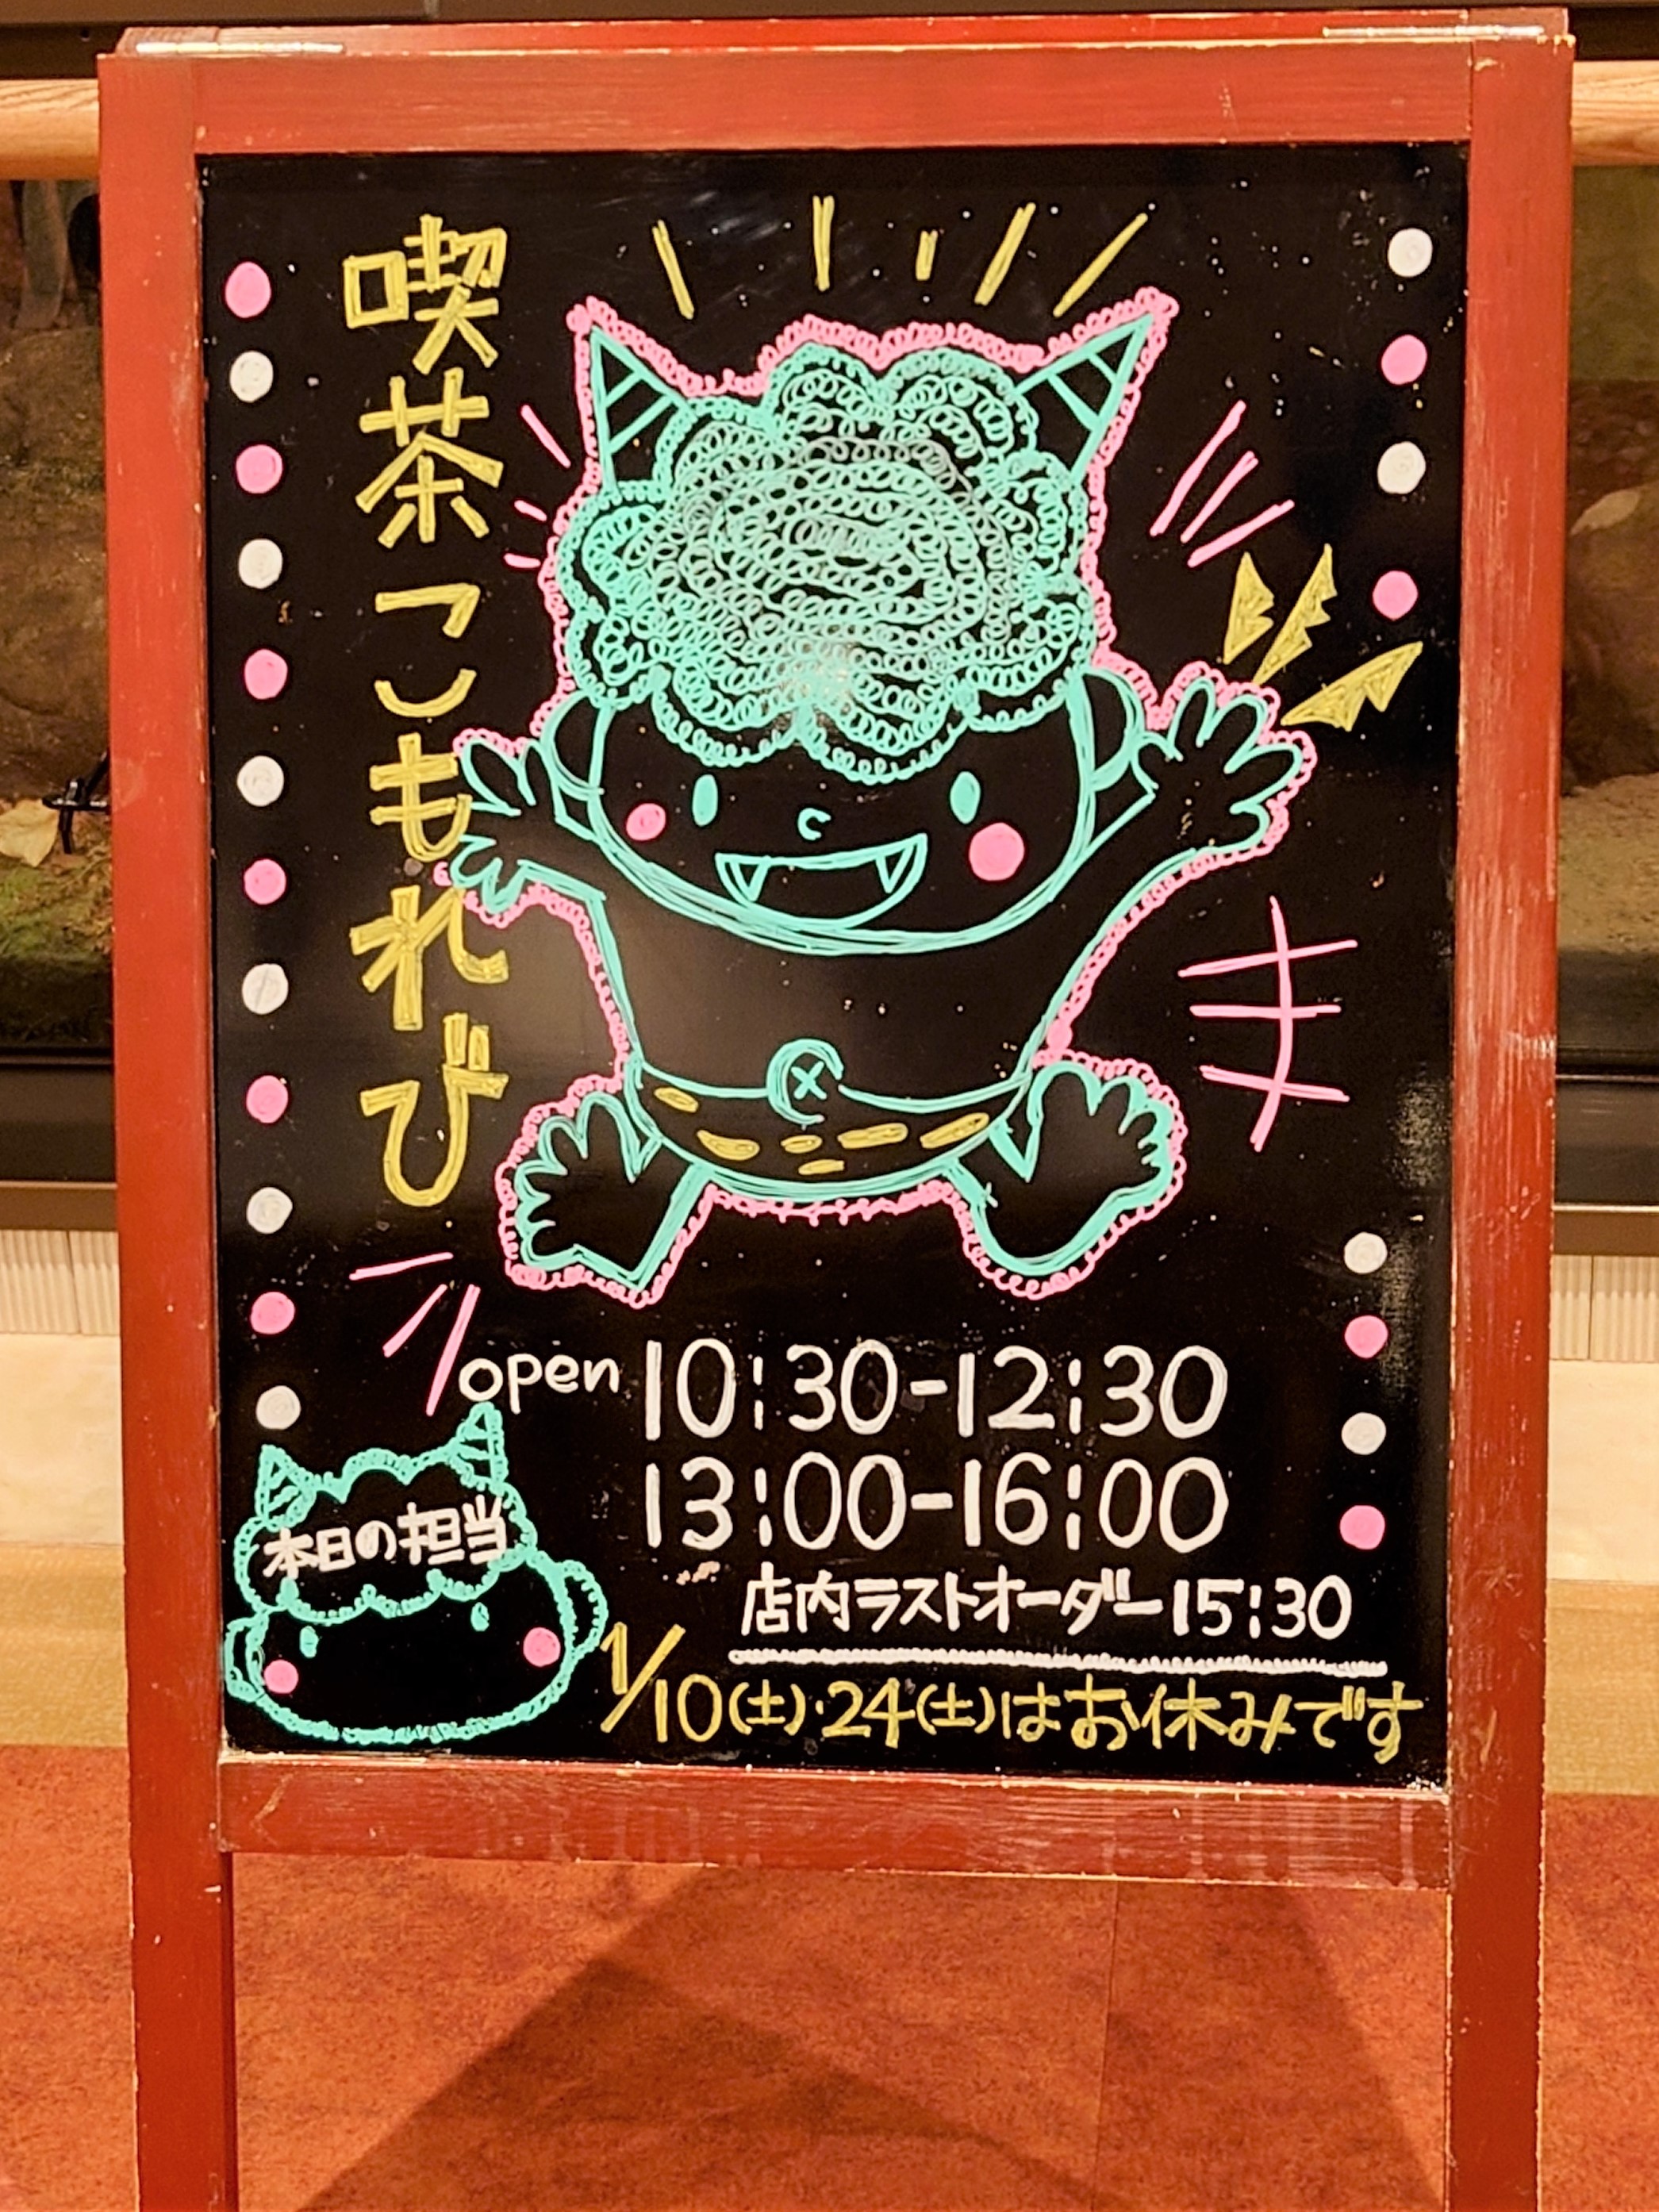 喫茶こもれび
open 10:30-12:30
13:00-16:00
店内ラストオーダー15:30
本日の担当
1/10(土)・24(土)はお休みです